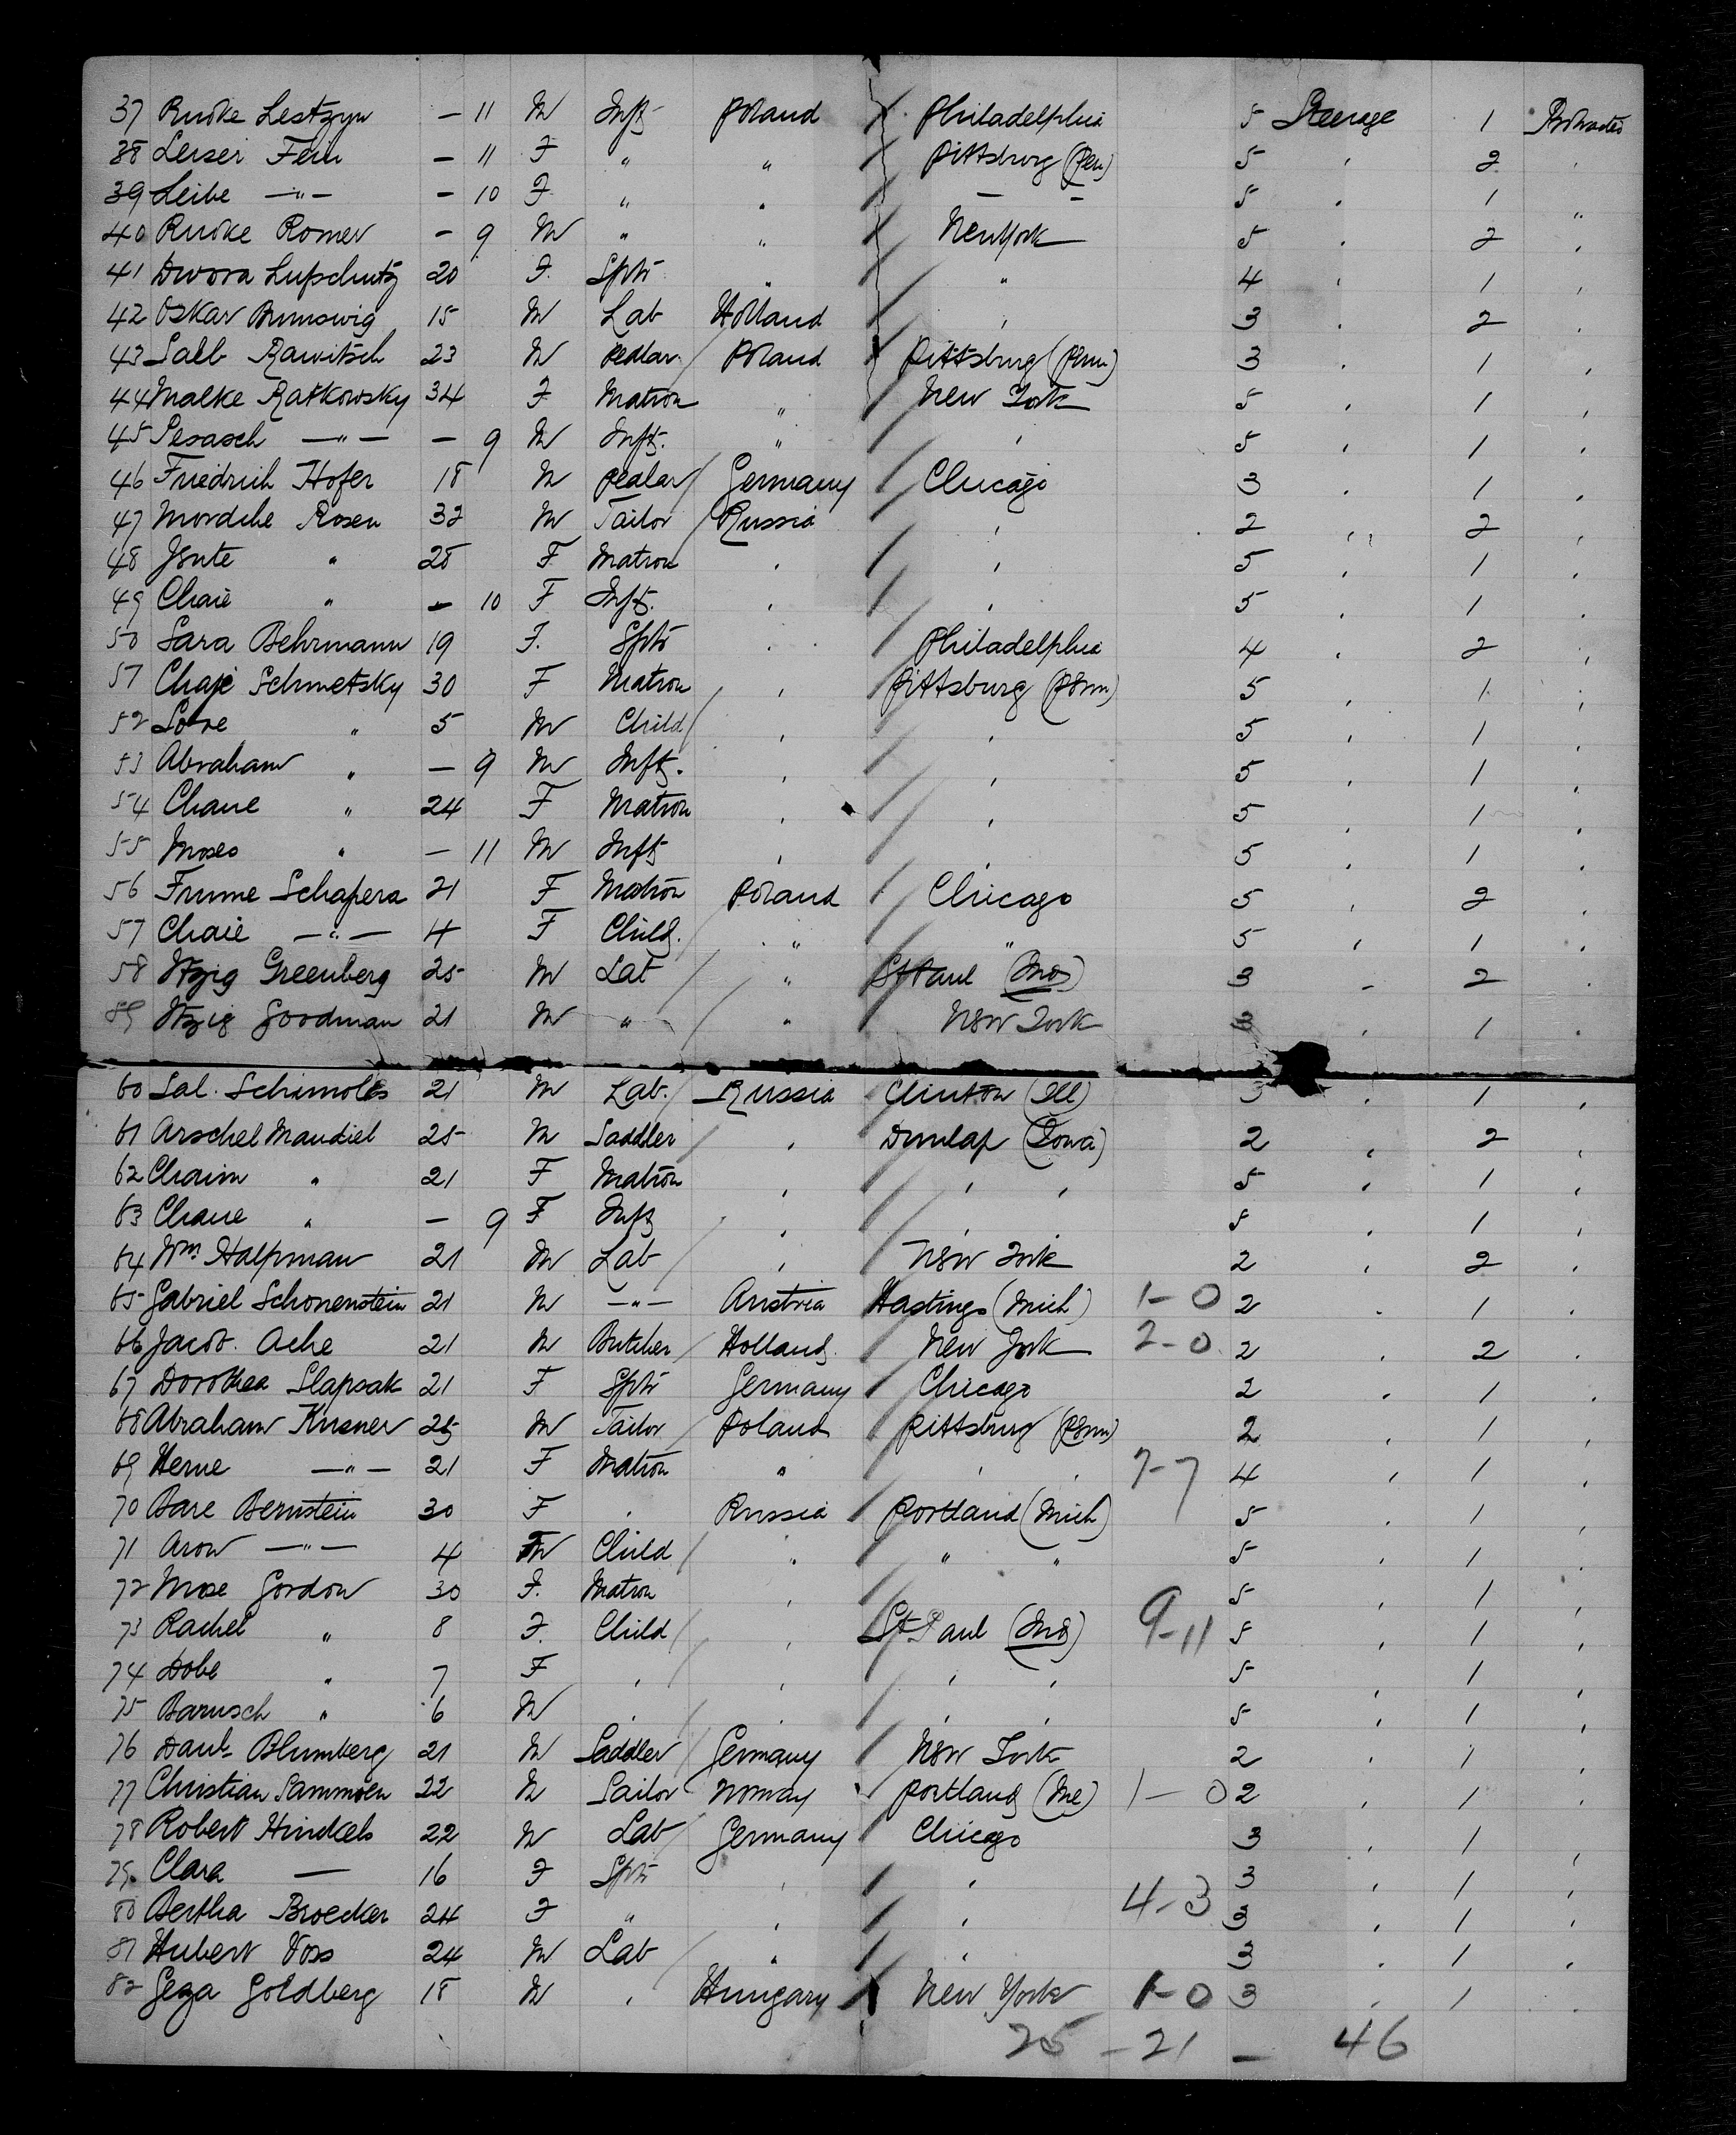 37 Rucke Lestzyn — 11 M Inft Poland Philadelphia 5 Steerage 1 Protracted
38 Leiser Fern — 11 F " " Pittsburg (Pen) 5 " 2 "
39 Leibe —"— — 10 F " " — — 5 " 1 "
40 Rucke Romer — 9 M " " New York 5 " 2 "
41 Dwora Lupschutz 20 F. Sptr " " 4 " 1 "
42 Oskar Brunswig 15 M Lab Holland " 3 " 2 "
43 Salb Rawitsch 23 M Pedlar Poland Pittsburg (Penn) 3 " 1 "
44 Malke Ratkowsky 34 F Matron " New York 5 " 1 "
45 Pesasch —"— — 9 M Inft. " " 5 " 1 "
46 Friedrich Hofer 18 M Pedlar Germany Chicago 3 " 1 "
47 Mordche Rosen 32 M Tailor Russia " 2 " 2 "
48 Jente " 28 F Matron " " 5 " 1 "
49 Chaie " — 10 F Inft. " " 5 " 1 "
50 Sara Behrmann 19 F. Sptr " Philadelphia 4 " 2 "
51 Chaje Schmetsky 30 F Matron " Pittsburg (Penn) 5 " 1 "
52 Sore " 5 M Child " " 5 " 1 "
53 Abraham " — 9 M Inft. " " 5 " 1 "
54 Chane " 24 F Matron " " 5 " 1 "
55 Moses " — 11 M Inft " " 5 " 1 "
56 Frume Schapera 21 F Matron Poland Chicago 5 " 2 "
57 Chaie —"— 4 F Child. " " 5 " 1 "
58 Itzig Greenberg 25 M Lab " St Paul (Mos) 3 " 2 "
59 Itzig Goodman 21 M " " New York 3 " 1 "
60 Sal. Schimolks 21 M Lab. Russia Clinton (Ill) 3 " 1 "
61 Arschel Maudiel 25 M Saddler " Dunlap (Iowa) 2 " 2 "
62 Chaim " 21 F Matron " " " 5 " 1 "
63 Chane " — 9 F Inft " " 5 " 1 "
64 Wm. Halpman 21 M Lab " New York 2 " 2 "
65 Gabriel Schonenstein 21 M —"— Austria Hastings (Mich) 1–0 2 " 1 "
66 Jacob. Ache 21 M Butcher Holland. New York 2–0 2 " 2 "
67 Dorothea Slapsak 21 F Sptr Germany Chicago 2 " 1 "
68 Abraham Kusner 25 M Tailor Poland Pittsburg (Penn) 2 " 1 "
69 Herne —"— 21 F Matron " " " 7–7 4 " 1 "
70 Bare Bernstein 30 F " Russia Portland (Mich) 5 " 1 "
71 Aron —"— 4 M Child " " " 5 " 1 "
72 Mose Gordon 30 F. Matron " 5 " 1 "
73 Rachel " 8 F. Child " St Paul (Mos) 9–11 5 " 1 "
74 Dobe " 7 F " " " " 5 1
75 Barusch " 6 M " " " " 5 " 1 "
76 Danl. Blumberg 21 M Saddler Germany New York 2 " 1 "
77 Christian Sammoen 22 M Sailor Norway Portland (Me) 1–0 2 " 1 "
78 Robert Hinckels 22 M Lab Germany Chicago 3 " 1 "
79. Clara — 16 F Sptr " " 3 " 1 "
80 Bertha Broecker 24 F " " " 4–3 3 " 1 "
81 Hubert Voss 24 M Lab " " 3 " 1 "
82 Geza Goldberg 18 M " Hungary New York 1–0 3 " 1 "
25 – 21 — 46